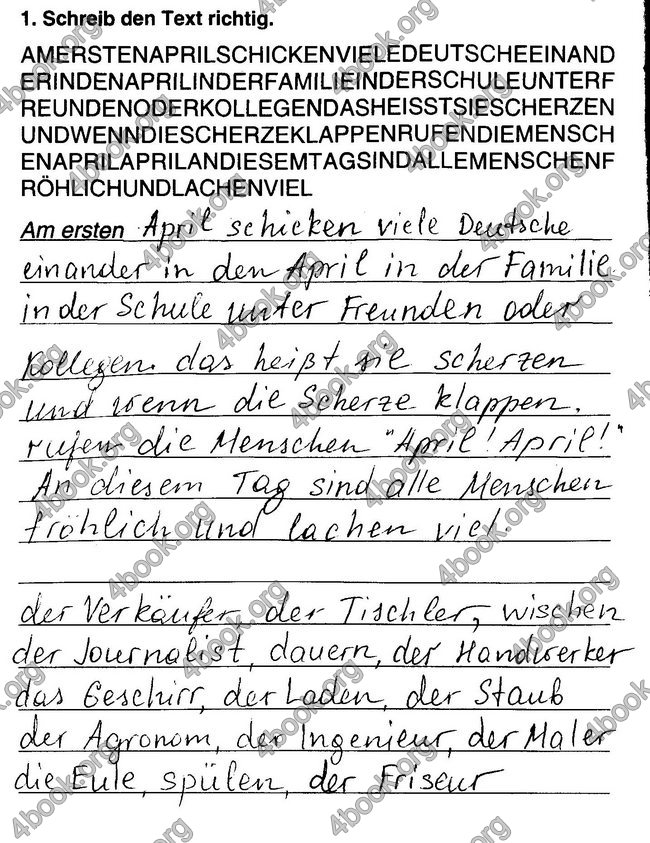 1. Schreib den Text richtig.
AMERSTENAPRILSCHICKENVIELEDEUTSCHEEINAND
ERINDENAPRILINDERFAMILIEINDERSCHULEUNTERF
REUNDENODERKOLLEGENDASHEISSTSIESCHERZEN
UNDWENNDIESCHERZEKLAPPENRUFENDIEMENSCH
ENAPRILAPRILANDIESEMTAGSINDALLEMENSCHENF
RÖHLICHUNDLACHENVIEL
Am ersten April schicken viele Deutsche
einander in den April in der Familie
in der Schule unter Freunden oder
Kollegen. das heißt sie scherzen
und wenn die Scherze klappen.
rufen die Menschen "April! April!"
An diesem Tag sind alle Menschen
fröhlich und lachen viel.
der Verkäufer, der Tischler, wischen
der Journalist, dauern, der Handwerker
das Geschirr, der Laden, der Staub
der Agronom, der Ingenieur, der Maler
die Eule, spülen, der Friseur
4book.org